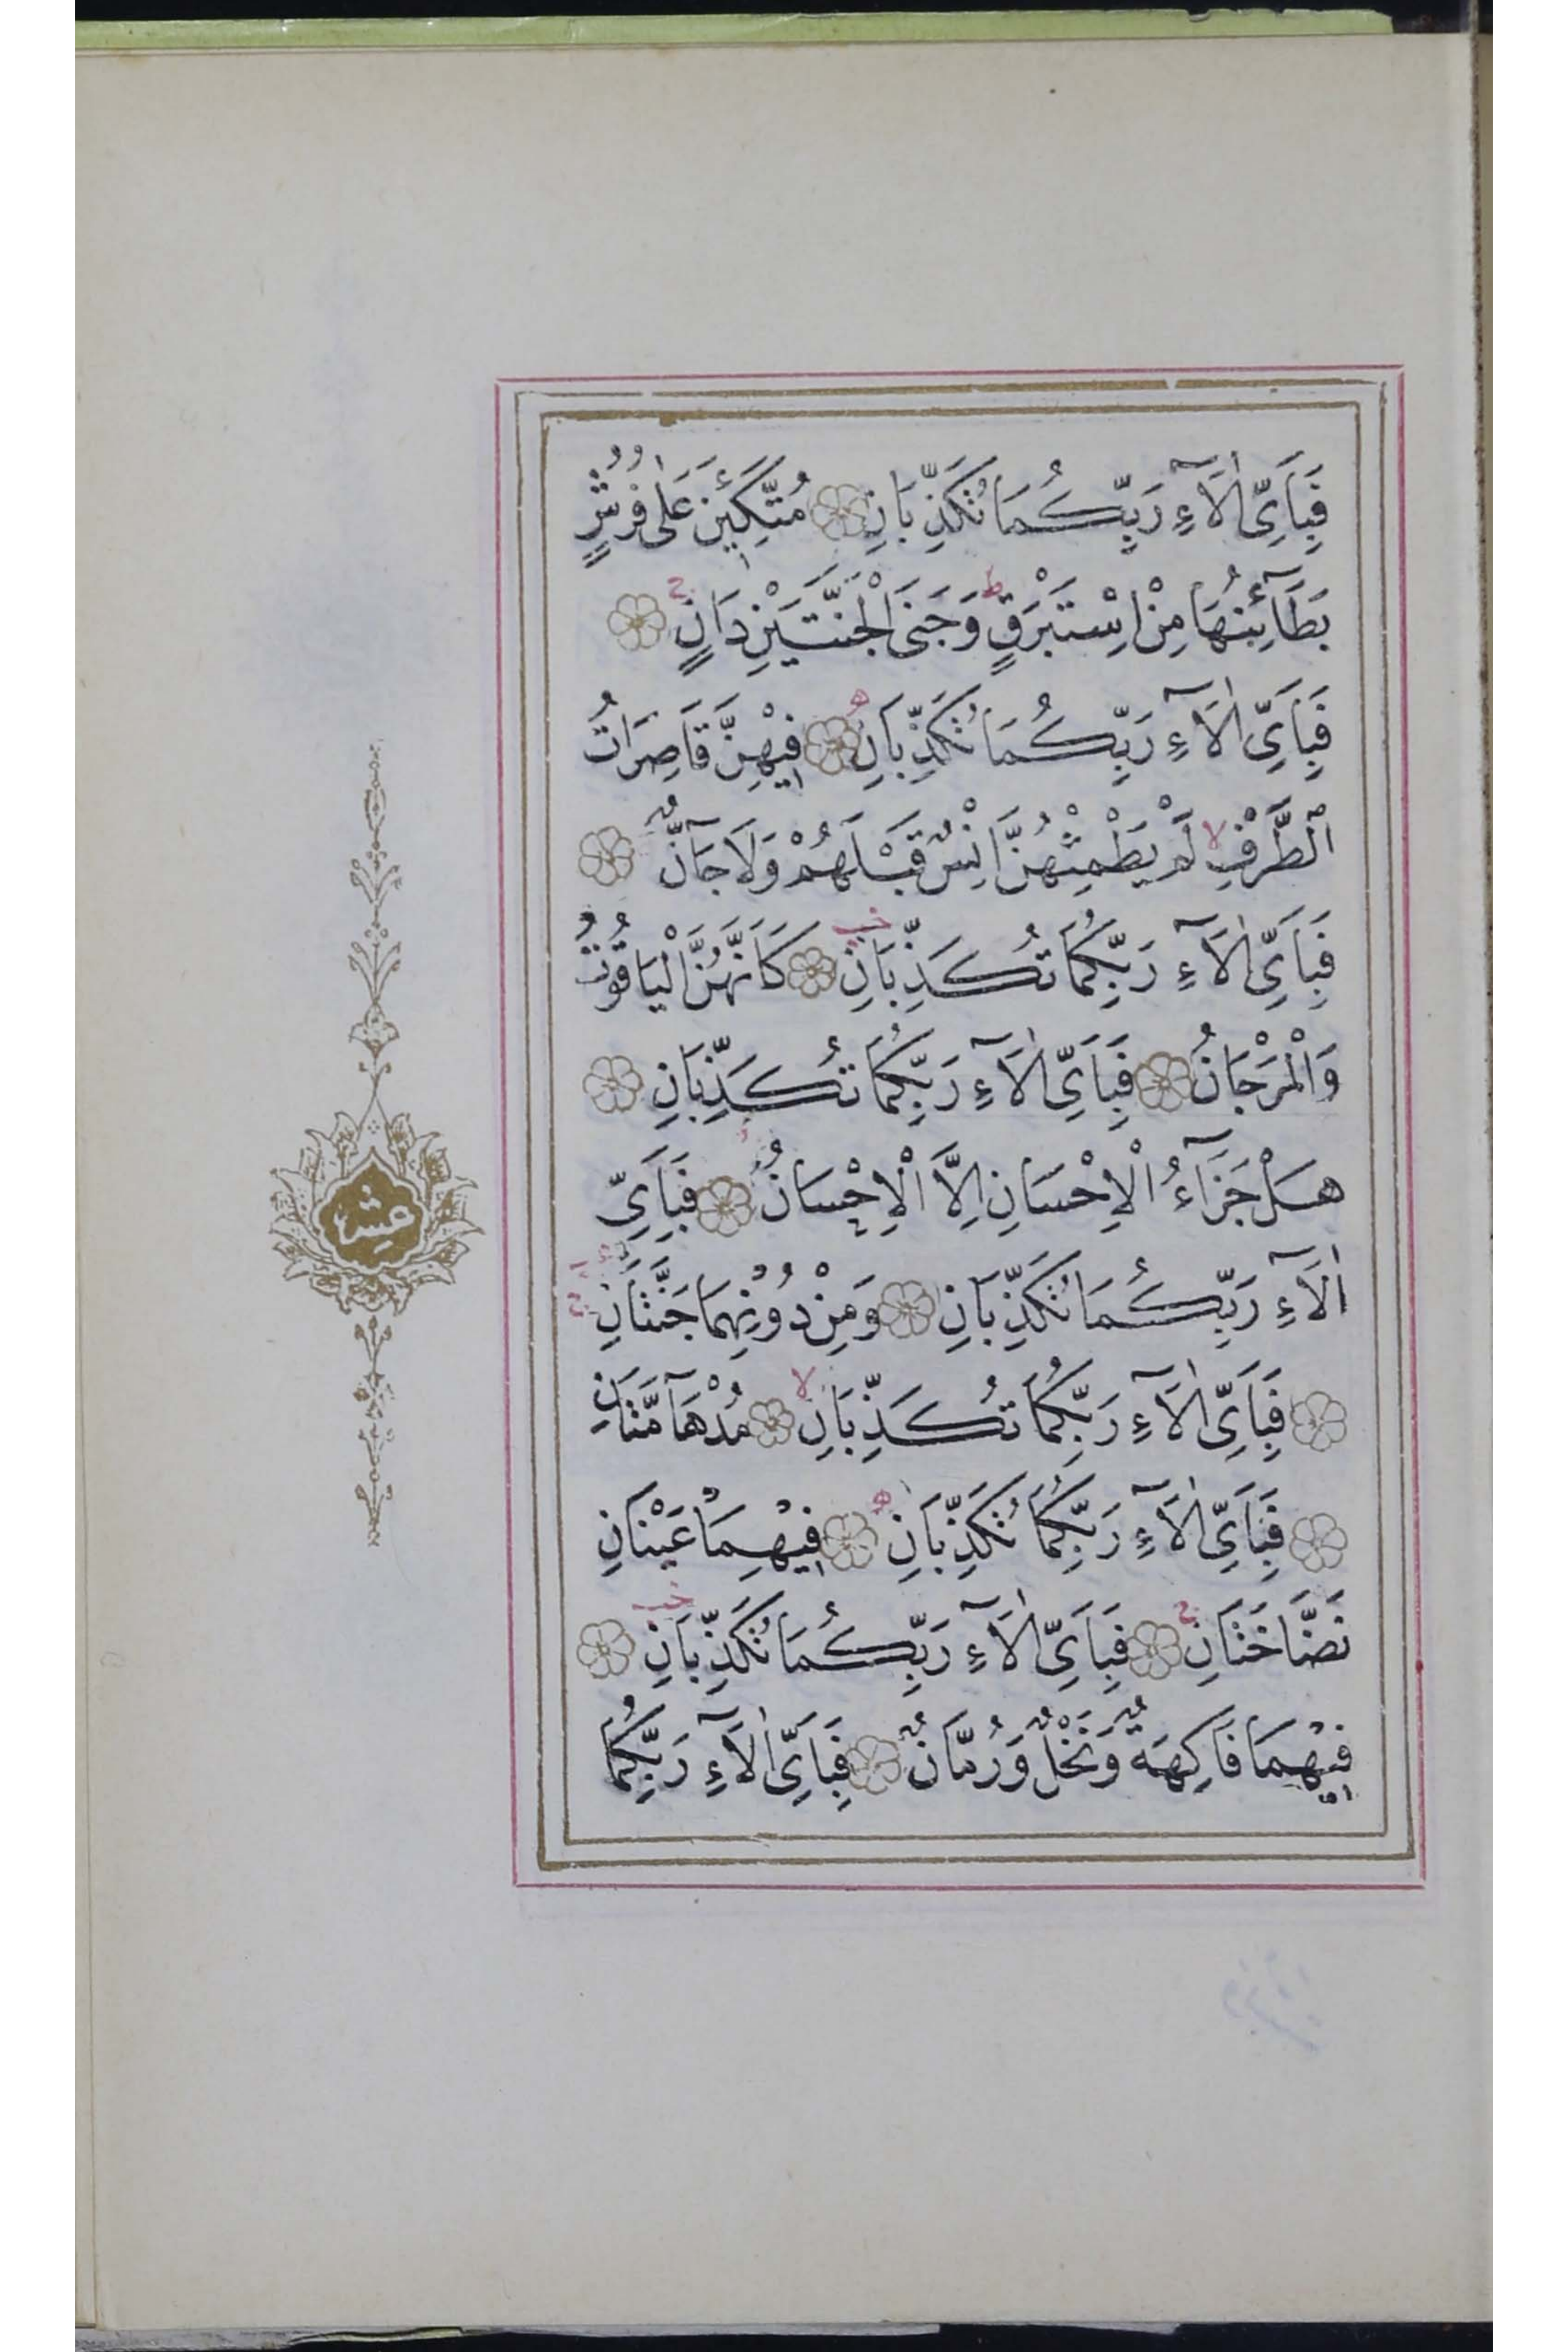 فَبِاَيِّ اٰلَآءِ رَبِّكُمَا تُكَذِّبَانِ مُتَّكِـِٔينَ عَلٰى فُرُشٍ
بَطَآئِنُهَا مِنْ اِسْتَبْرَقٍ ط وَجَنَى الْجَنَّتَيْنِ دَانٍ ج
فَبِاَيِّ اٰلَآءِ رَبِّكُمَا تُكَذِّبَانِ ه فِيْهِنَّ قَاصِرَاتُ
الطَّرْفِ لا لَمْ يَطْمِثْهُنَّ اِنْسٌ قَبْلَهُمْ وَلَا جَآنٌّ
فَبِاَيِّ اٰلَآءِ رَبِّكُمَا تُكَذِّبَانِ كَاَنَّهُنَّ الْيَاقُوْتُ
وَالْمَرْجَانُ فَبِاَيِّ اٰلَآءِ رَبِّكُمَا تُكَذِّبَانِ
هَلْ جَزَآءُ الْاِحْسَانِ اِلَّا الْاِحْسَانُ فَبِاَيِّ
اٰلَآءِ رَبِّكُمَا تُكَذِّبَانِ وَمِنْ دُوْنِهِمَا جَنَّتَانِ ج
فَبِاَيِّ اٰلَآءِ رَبِّكُمَا تُكَذِّبَانِ لا مُدْهَآمَّتَانِ
فَبِاَيِّ اٰلَآءِ رَبِّكُمَا تُكَذِّبَانِ ه فِيْهِمَا عَيْنَانِ
نَضَّاخَتَانِ ج فَبِاَيِّ اٰلَآءِ رَبِّكُمَا تُكَذِّبَانِ
فِيْهِمَا فَاكِهَةٌ وَنَخْلٌ وَرُمَّانٌ فَبِاَيِّ اٰلَآءِ رَبِّكُمَا